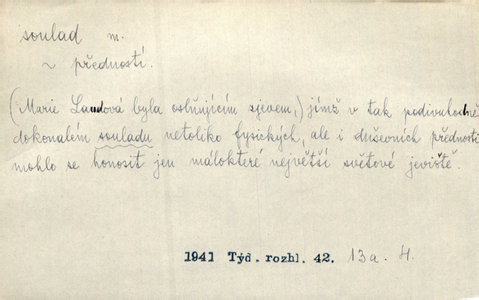 soulad m.
~ předností.
(Marie Laudová byla oslňujícím zjevem,) jímž v tak podivuhodně
dokonalém souladu netoliko fysických, ale i duševních předností
mohlo se honosit jen málokteré největší světové jeviště.
1941 Týd. rozhl. 42. 13a. H.